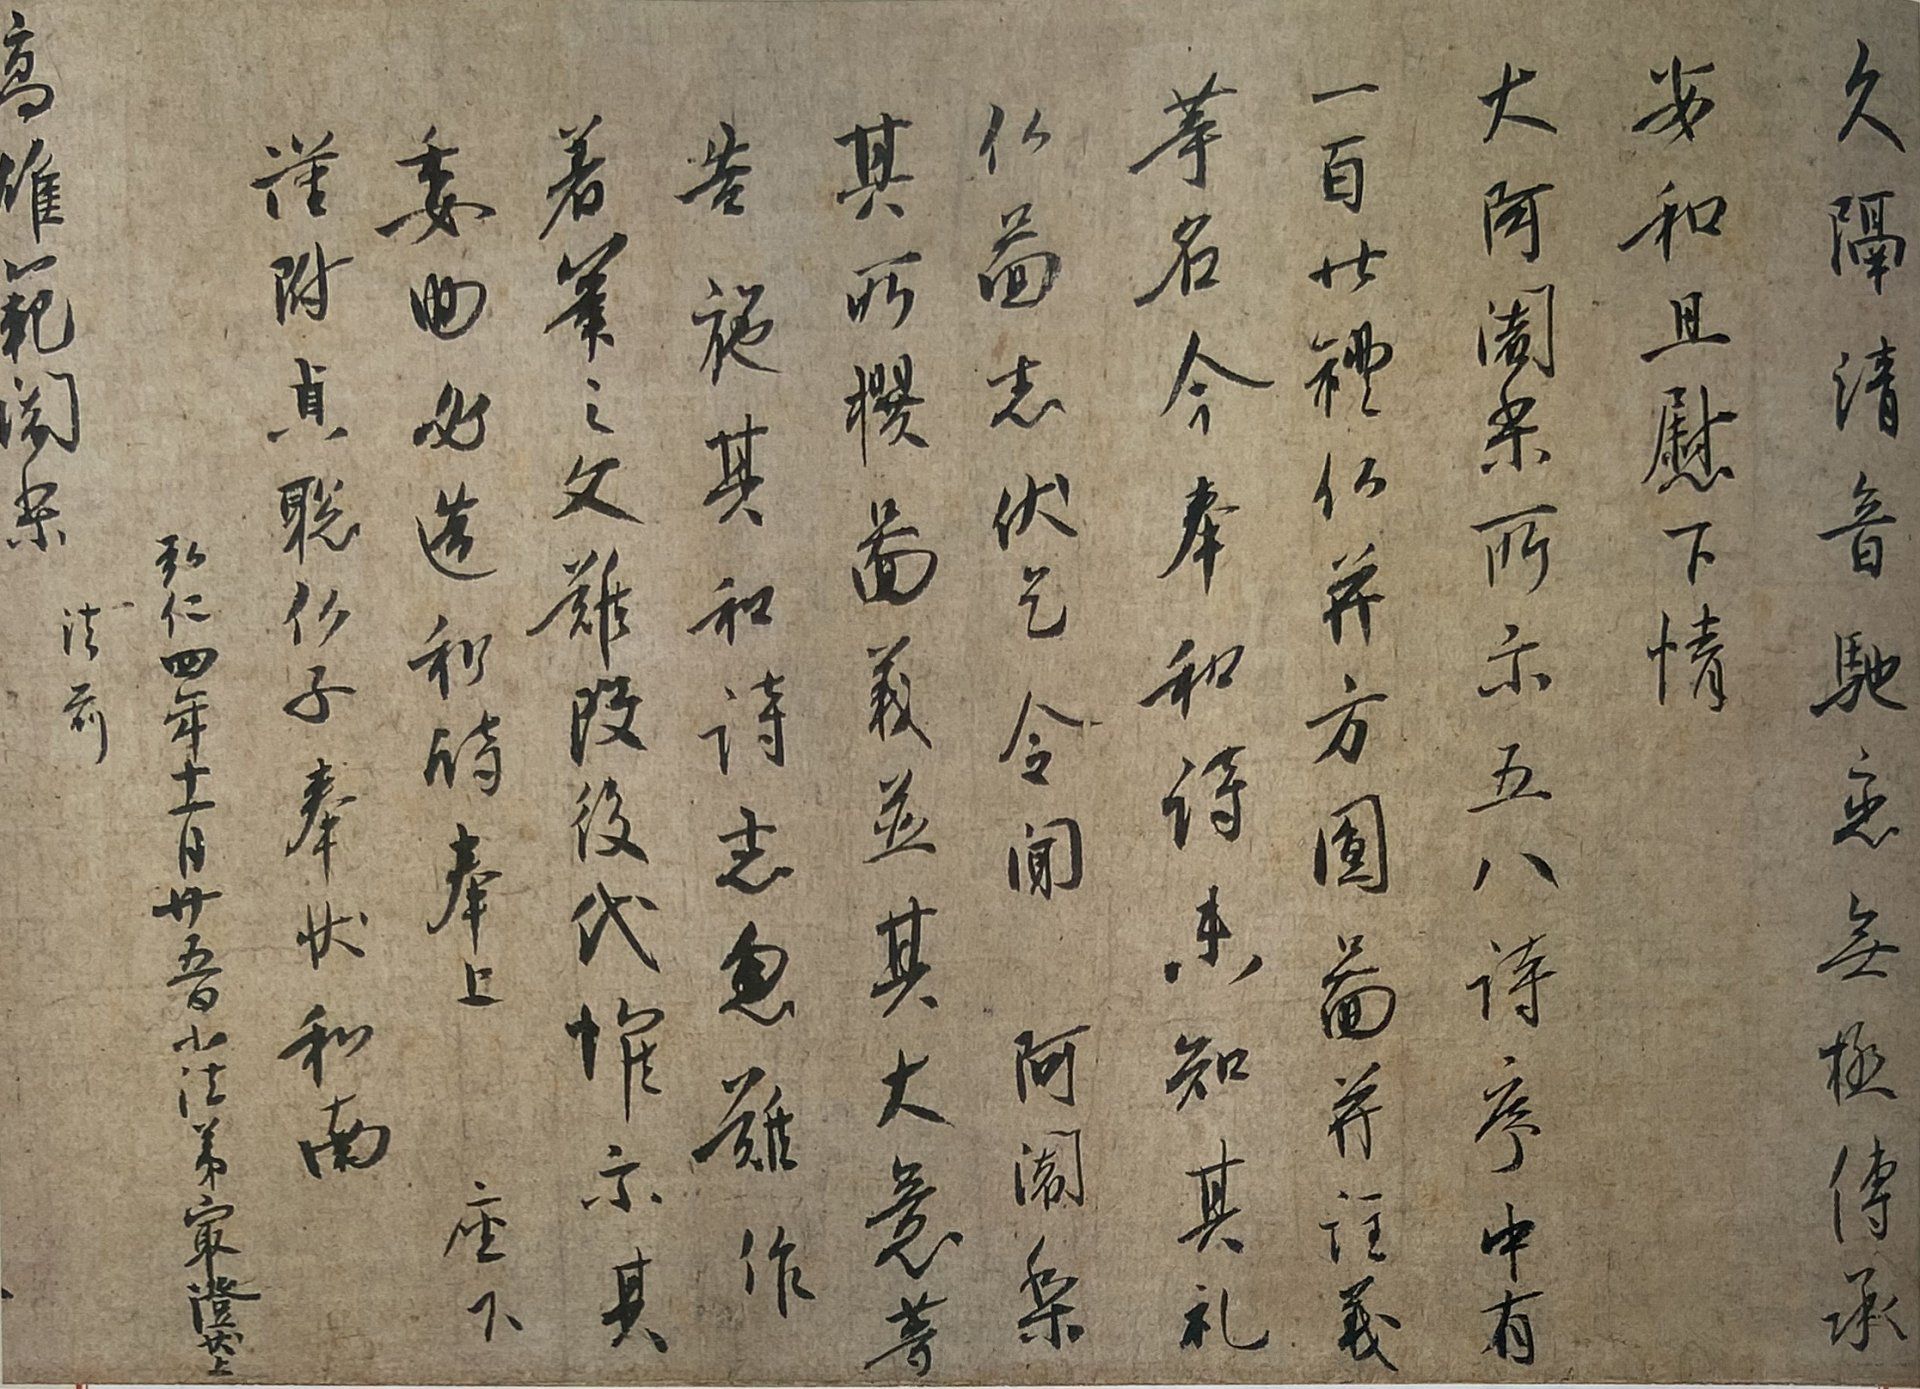 久隔清音馳恋無極傳承
安和且慰下情
大阿闍梨所示五八詩序中有
一百廿禮仏并方圓啚并註義
等名今奉和詩未知其礼
仏啚志伏乞令聞 阿闍梨
其所撰啚義並其大意等
告施其和詩忽難作
著筆之文難改後代惟示其
委曲必造和詩奉上 座下
謹附貞聡仏子奉状和南
弘仁四年十一月廿五日小法弟最澄状上
高雄範闍梨
法前